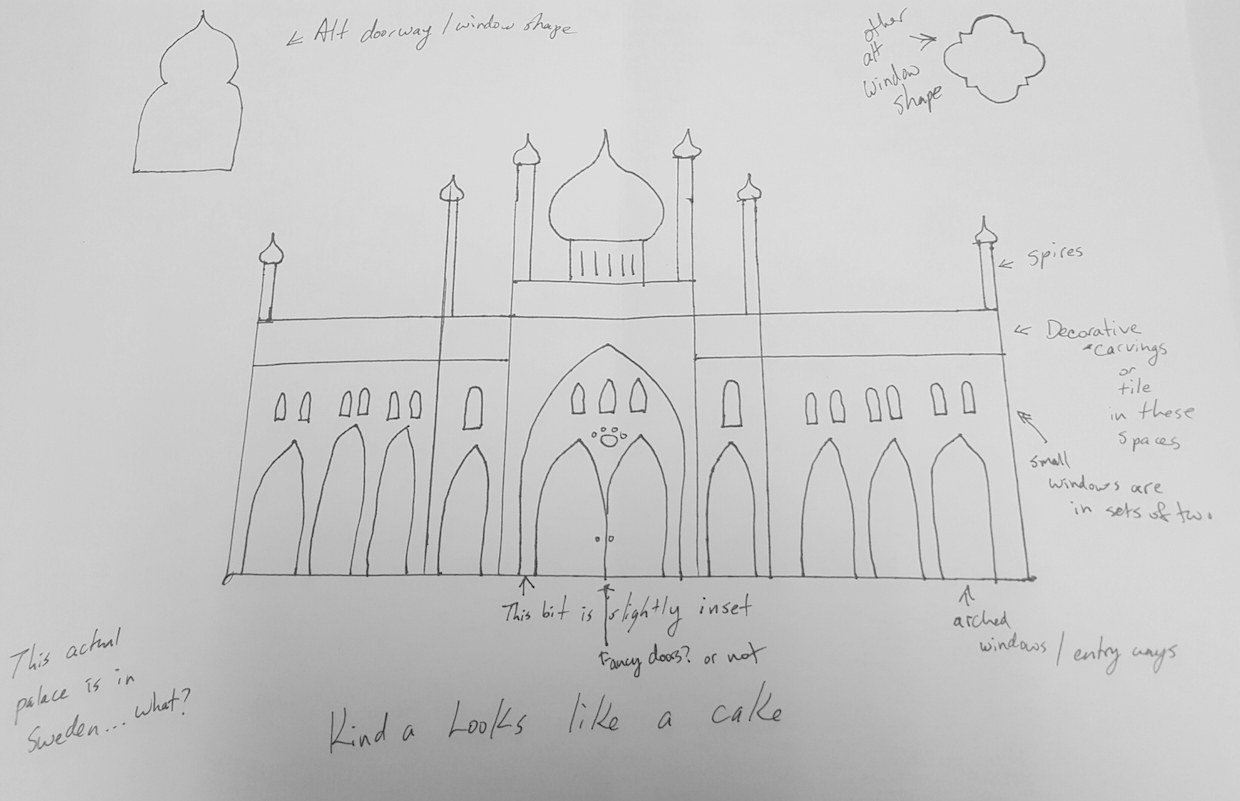 Alt doorway/window shape
other
alt
window
shape
spires
Decorative
carvings
or
tile
in these
spaces
small
windows are
in sets of two.
This bit is slightly inset
Fancy doors? or not
arched
windows/entry ways
This actual
palace is in
Sweden... what?
Kinda Looks like a cake